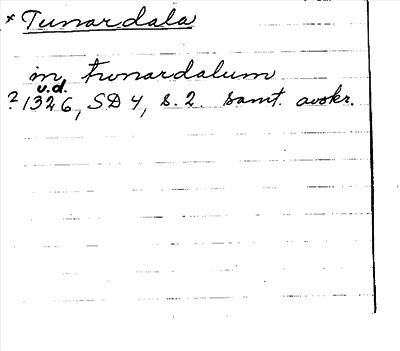 * Tunardala
in, tunardalum
u.d.
? 1326, SD 4, s. 2. samt. avskr.